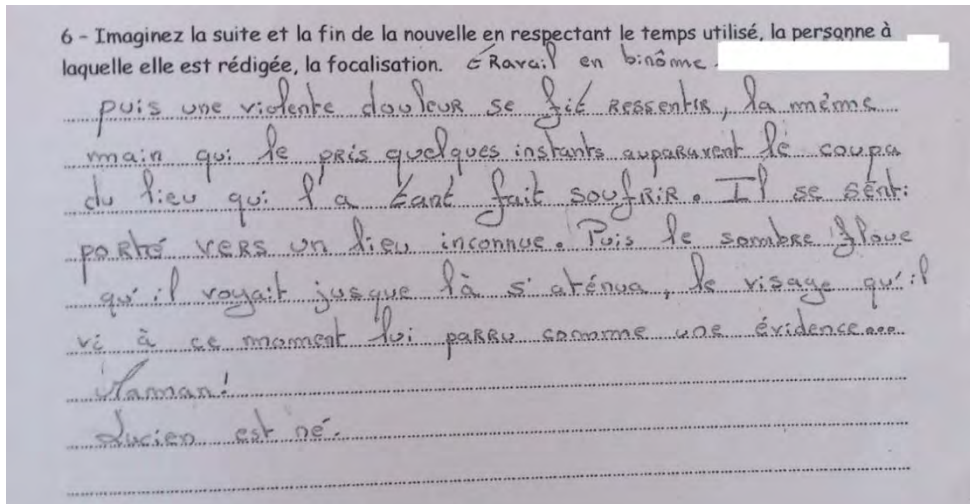 6 - Imaginez la suite et la fin de la nouvelle en respectant le temps utilisé, la personne à
laquelle elle est rédigée, la focalisation. travail en binôme
puis une violente douleur se fit ressentir, la même
main qui le pris quelques instants auparavent le coupa
du lieu qui l'a tant fait soufrir. Il se senti
porté vers un lieu inconnue. Puis le sombre floue
qu'il voyait jusque là s'aténua, le visage qu'il
vi à ce moment lui parru comme une évidence...
Maman!
Lucien est né.